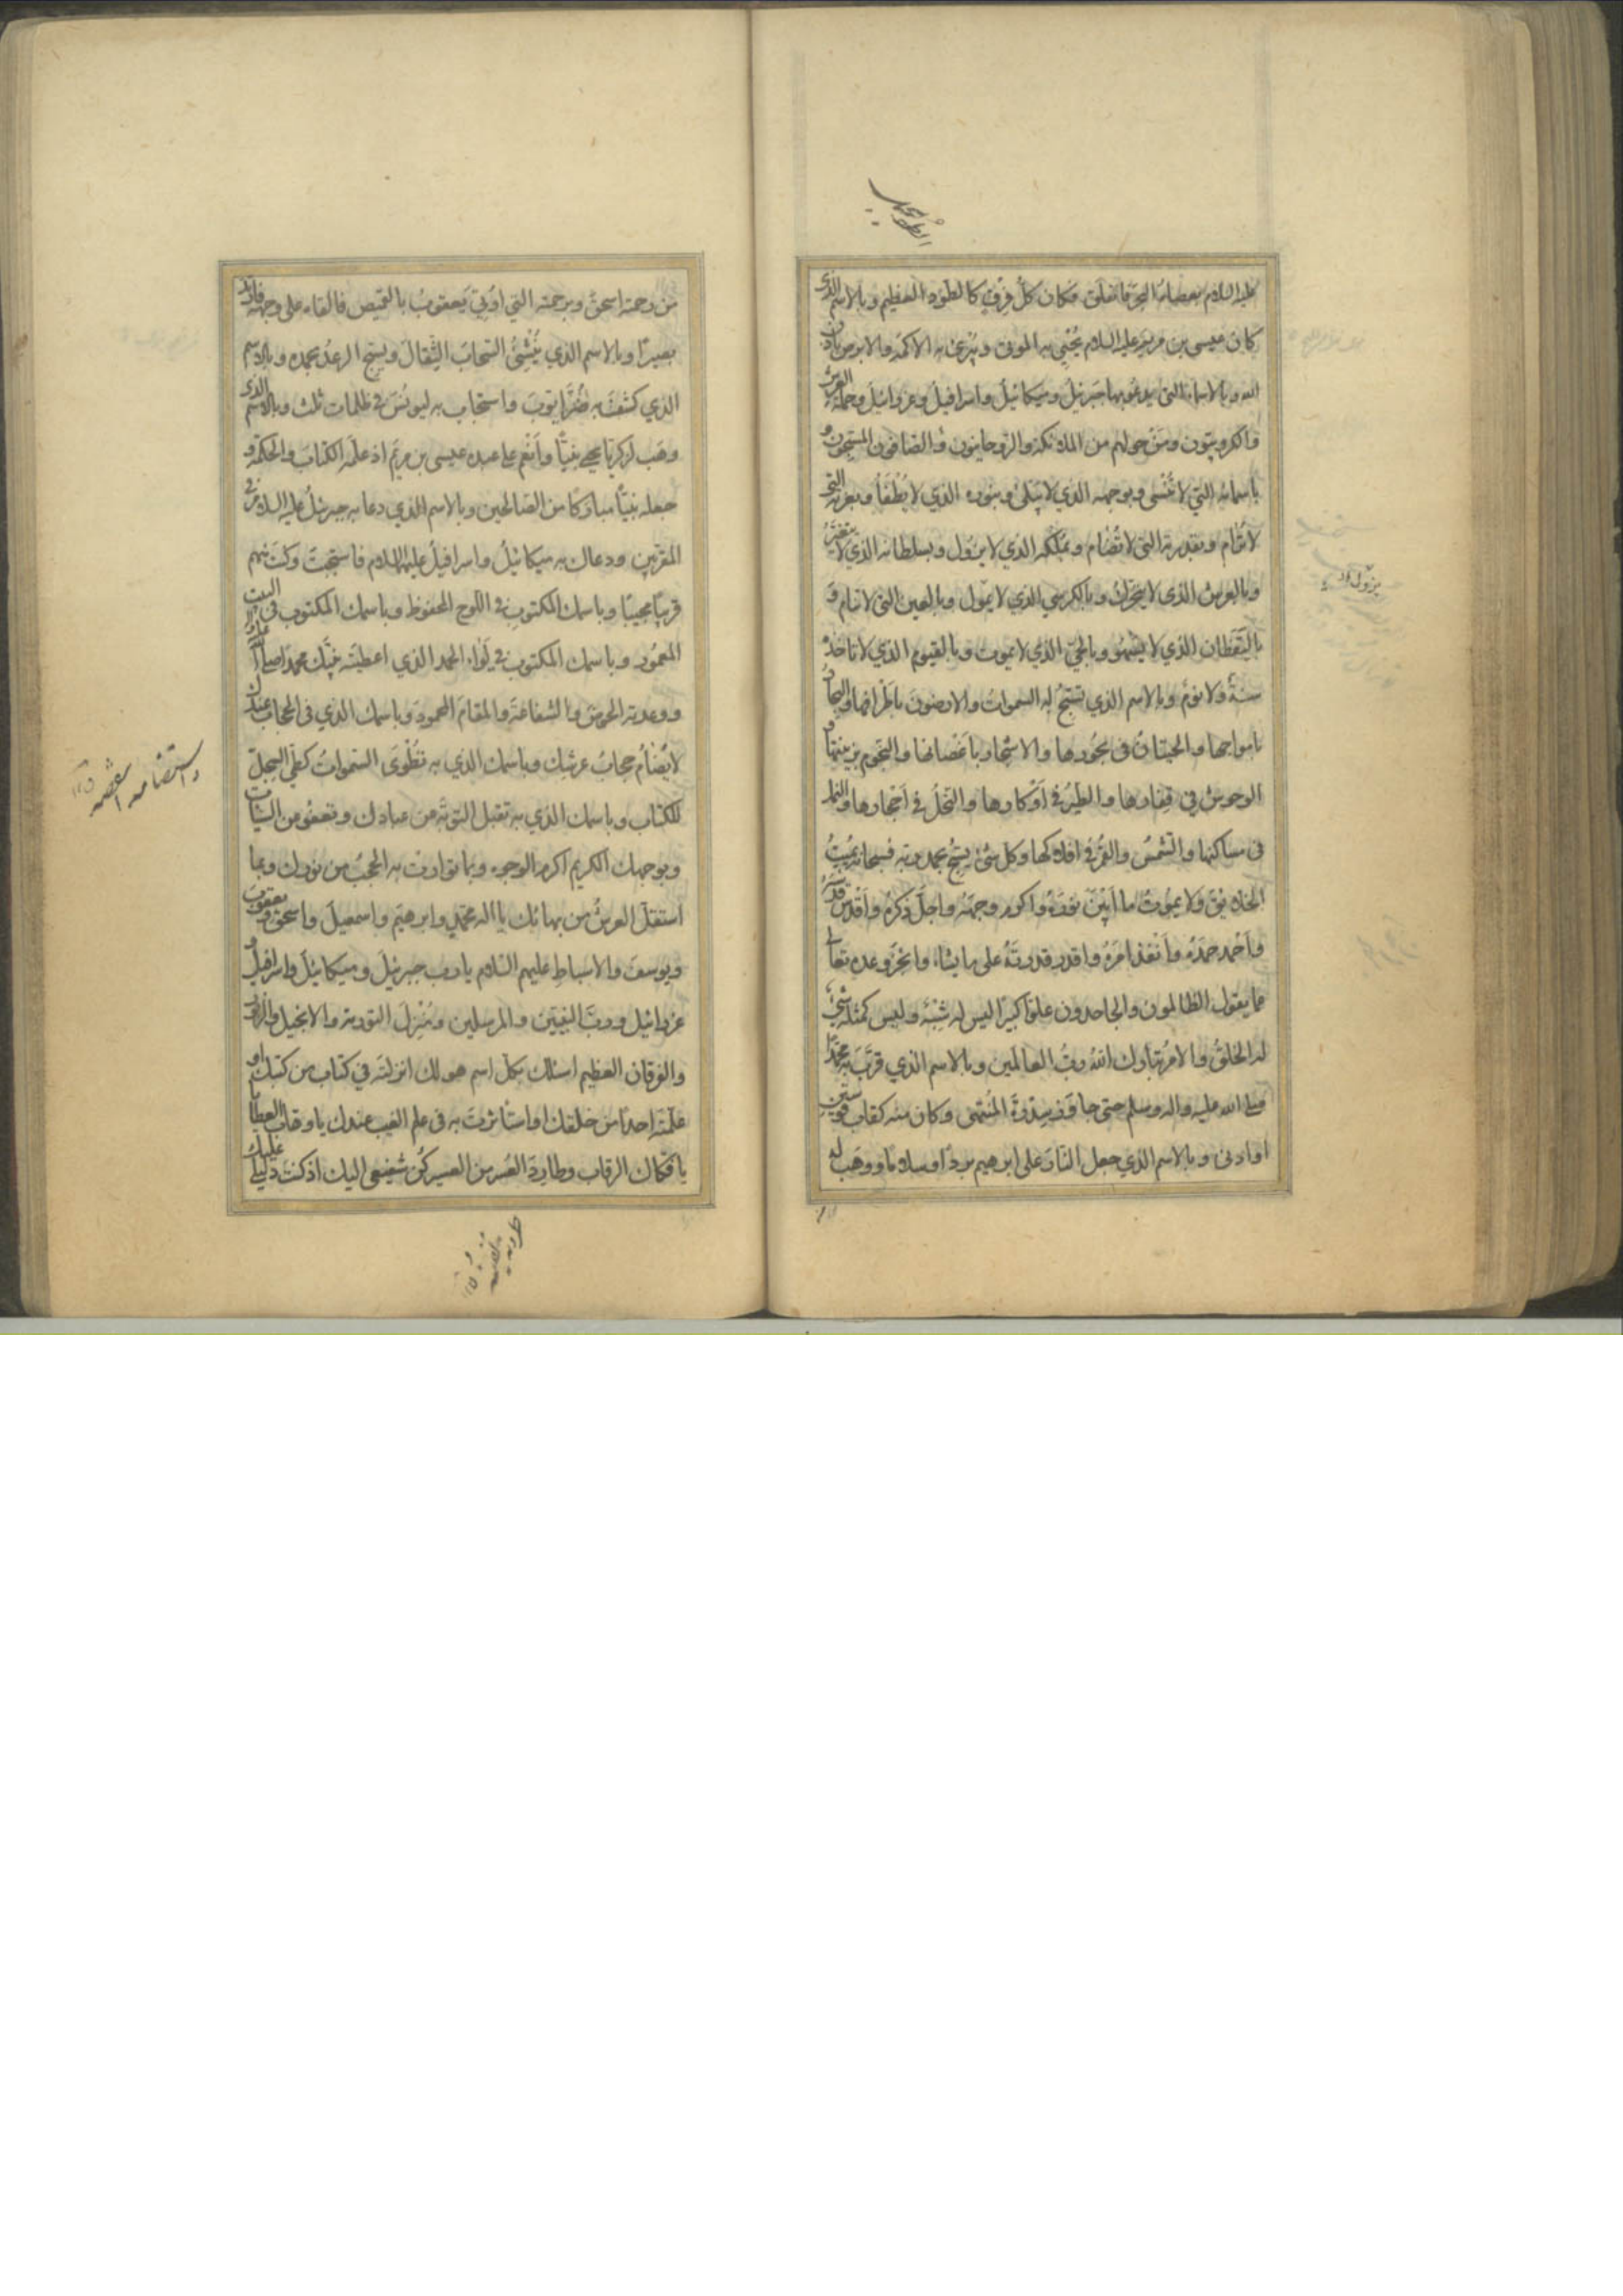 عليه السلام بعصاه البحر فانفلق فكان كلُّ فِرقٍ كالطود العظيم وبالاسم الذي
كان عيسى بن مريم عليه السلام يُحْيِي به الموتى ويُبرئ به الاكمه والابرص باذن
الله وبالاسماء التي يدعو بها جبرئيل وميكائيل واسرافيل وعزرائيل وحملة العرش
والكروبيّون ومَنْ حولهم من الملائكة والروحانيون والصّافون المسبّحون و
باسمائه التي لا تُنْسى وبوجهه الذي لا يَبْلى وبنوره الذي لا يُطْفَأُ وبعزته التي
لا تُرام وبقدرته التي لا تُضام وبملكه الذي لا يزول وبسلطانه الذي لا يتغيّر
وبالعرش الذي لا يتحرّك وبالكرسي الذي لا يزول وبالعين التي لا تنام و
باليَقظان الذي لا يَسْهُو وبالحيّ الذي لا يموت وبالقيوم الذي لا تاخذه
سنةٌ ولا نومٌ وبالاسم الذي تسبّح له السموات والارضون باطرافها والبحار
بامواجها والحيتان في بحورها والاشجار باَغصانها والنجوم بزينتها و
الوحوش في قفارها والطيرُ في اَوكارها والنحلُ في اَجحارها والنمل
في مساكنها والشمسُ والقمرُ في افلاكها وكل شئ يسبّح بحمد ربّه فسبحانه يُميتُ
الخلائق ولا يموت ما اَبْيَنَ نورَه واكرم وجهَه واجلّ ذكره واَقدس قدسه
واَحْمد حمدَه واَنفذ امرَه واقدر قدرتَه على ما يشاء وانجز وعده تعالى
عما يقول الظالمون والجاحدون علوًّا كبيرًا ليس له شِبْهٌ وليس كمثله شئ
له الخلقُ والامر تبارك الله ربُّ العالمين وبالاسم الذي قرّب به محمّدًا
صلى الله عليه واله وسلم حتى جاوز سِدْرَةَ المُنتهى وكان منه كقاب قوسين
او ادنى وبالاسم الذي جعل النّارَ على ابرهيم بردًا وسلامًا ووهب له
من رحمته اسحقَ وبرحمته التي اُوتِيَ يَعقوبُ بالقميص فالقاه على وجهه فارتدّ
بصيرًا وبالاسم الذي يُنْشِئُ السّحابَ الثِّقالَ ويسبح الرعدُ بحمده وبالاسم
الذي كشفت به ضُرَّ ايّوبَ واستجاب به ليونس في ظلمات ثلث وبالاسم الذي
وهب لزكريّا يحيى نبيًّا واَنعم على عبده عيسى بن مريم اذ علّمه الكتابَ والحكمة و
جعله نبيًّا مباركًا من الصالحين وبالاسم الذي دعا به جبرئيلُ عليه السلام في
المقربين ودعاك به ميكائيلُ واسرافيلُ عليهما السلام فاستجبتَ وكنت منهم
قريبًا مجيبًا وباسمك المكتوب في اللوح المحفوظ وباسمك المكتوب في البيت
المعمُور وباسمك المكتوب في لِواء الحمد الذي اعطيته نبيّك محمدا صلى الله عليه واله
ووعدته الحوضَ والشفاعةَ والمقامَ المحمودَ وباسمك الذي في الحجاب عندك
لا يُضامُ حجابُ عرشك وباسمك الذي به تُطْوَى السّموات كطيّ السِّجلّ
للكتاب وباسمك الذي به تقبل التوبة عن عبادك وتعفو عن السيئات
وبوجهك الكريم اكرم الوجوه وبما توارت به الحجبُ من نورك وبما
استقلّ العرشُ من بهائك يا اله محمّدٍ وابرهيمَ واسمعيلَ واسحقَ ويعقوب
ويوسفَ والاسباطِ عليهم السّلام يا ربّ جبرئيلَ وميكائيلَ واسرافيل و
عزرائيل وربَّ النبيّين والمرسلين ومُنزِلَ التوريةِ والانجيل والزبور
والفرقان العظيم اسئلك بكلّ اسم هو لك انزلته في كتاب من كتبك او
علّمتَه احدًا من خلقك او استأثرتَ به في علم الغيب عندك يا وهّاب العطايا
يا فكّاك الرقاب وطارِدَ العُسر من العسير كُن شفيعى اليك اذ كنت دليلي عليك